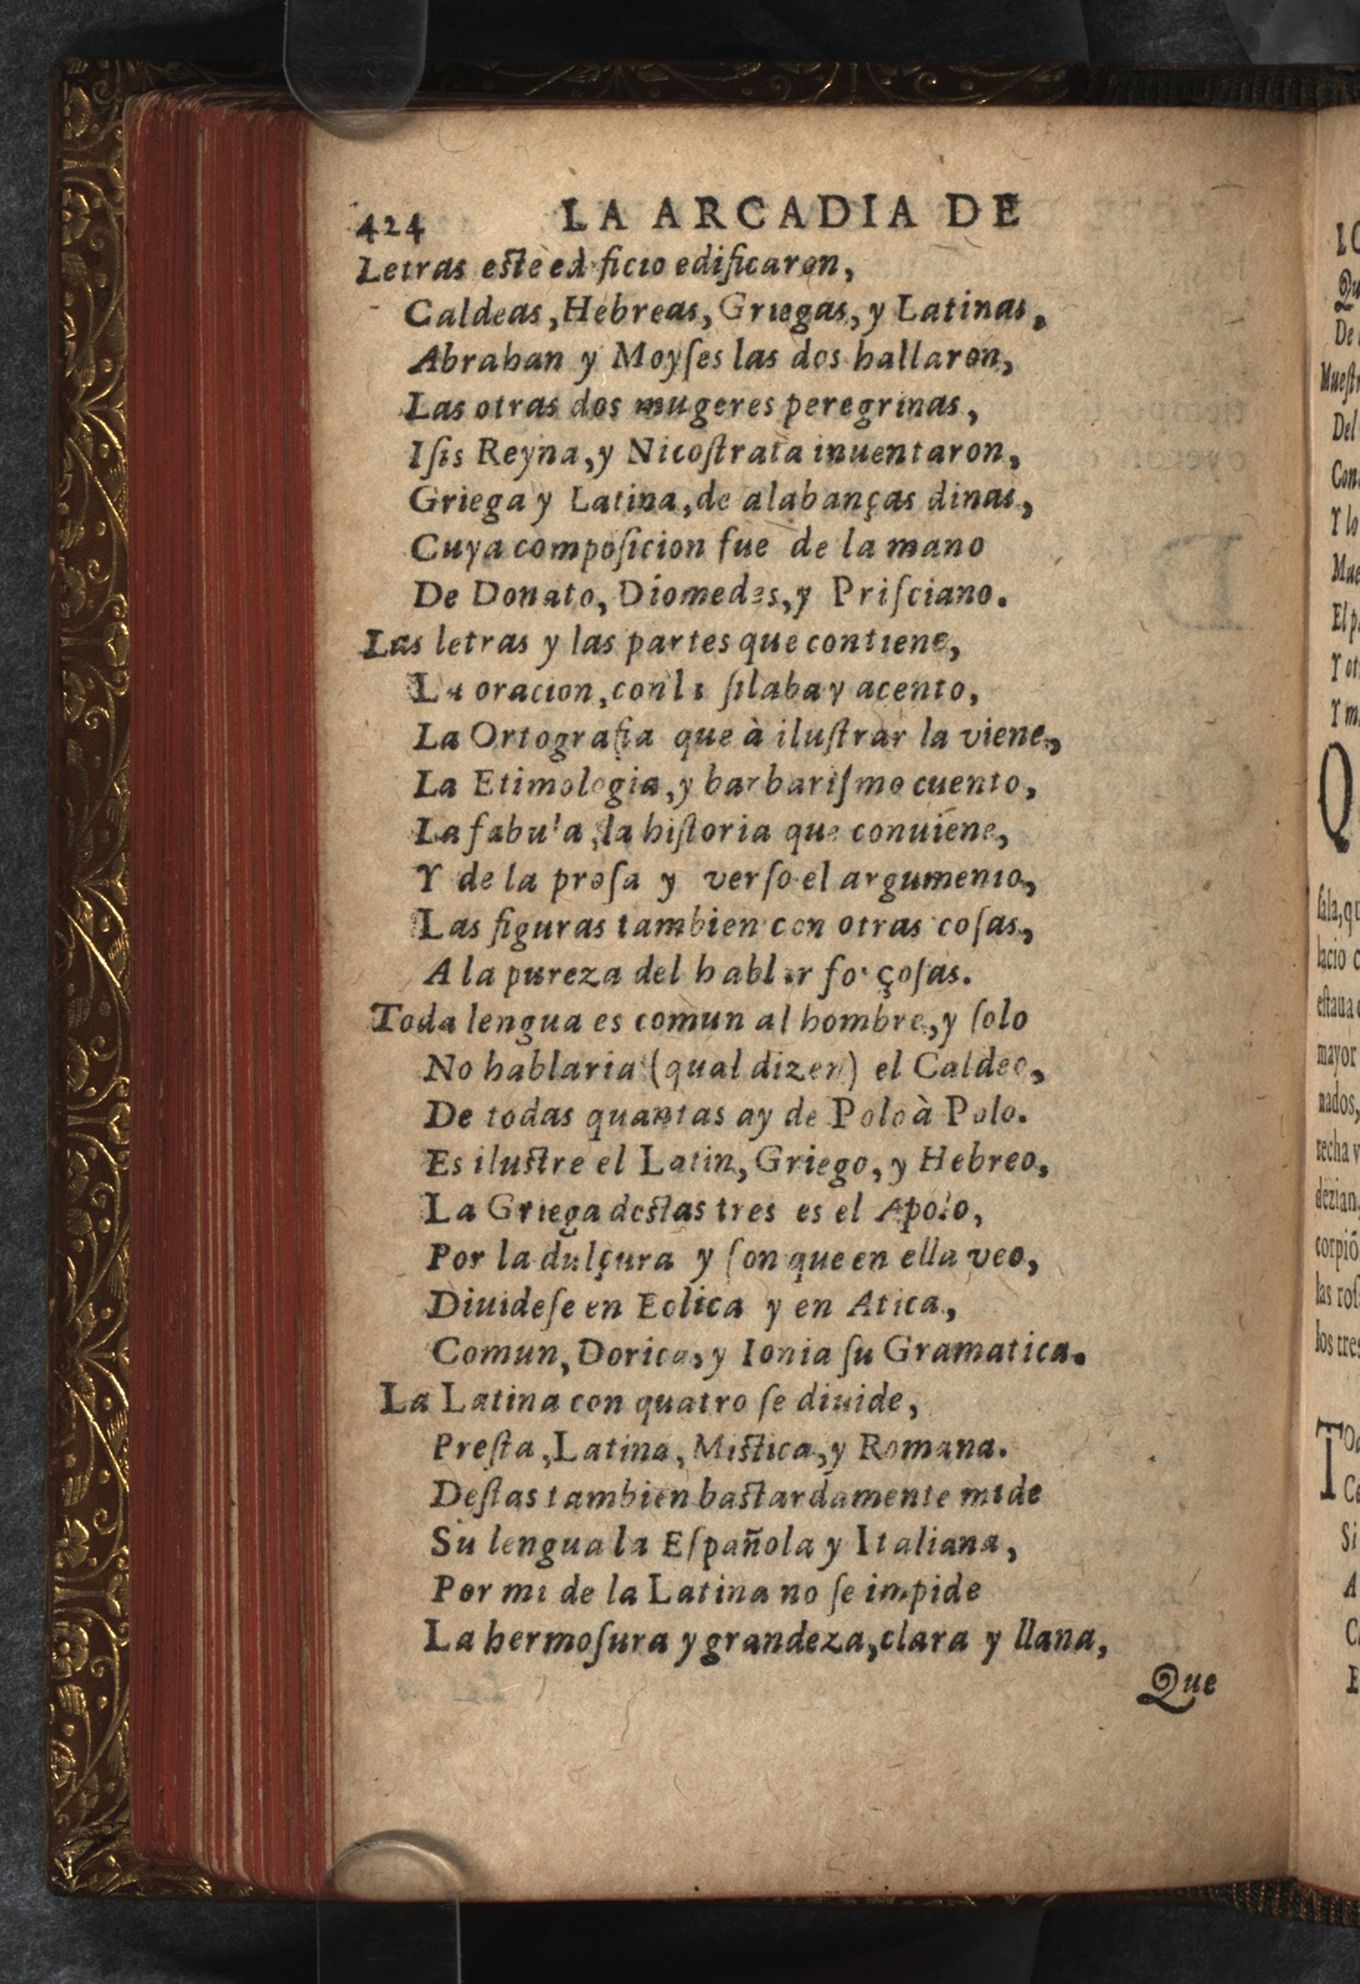 424 LA ARCADIA DE
Letras este edificio edificaron,
Caldeas, Hebreas, Griegas, y Latinas,
Abrahan y Moyſes las dos hallaron,
Las otras dos mugeres peregrinas,
Iſis Reyna, y Nicoſtrata inuentaron,
Griega y Latina, de alabanças dinas,
Cuya compoſicion fue de la mano
De Donato, Diomedes, y Priſciano.
Las letras y las partes que contiene,
La oracion, con la ſilaba y acento,
La Ortografia que à iluſtrar la viene,
La Etimologia, y barbariſmo cuento,
La fabula, la hiſtoria que conuiene,
Y de la proſa y verſo el argumento,
Las figuras tambien con otras coſas,
A la pureza del hablar forçoſas.
Toda lengua es comun al hombre, y ſolo
No hablaria (qual dizen) el Caldeo,
De todas quantas ay de Polo à Polo.
Es iluſtre el Latin, Griego, y Hebreo,
La Griega deſtas tres es el Apolo,
Por la dulçura y ſon que en ella veo,
Diuideſe en Eolica y en Atica,
Comun, Dorica, y Ionia ſu Gramatica.
La Latina con quatro ſe diuide,
Preſta, Latina, Miſtica, y Romana.
Deſtas tambien baſtardamente mide
Su lengua la Eſpañola y Italiana,
Por mi de la Latina no ſe impide
La hermoſura y grandeza, clara y llana,
Que